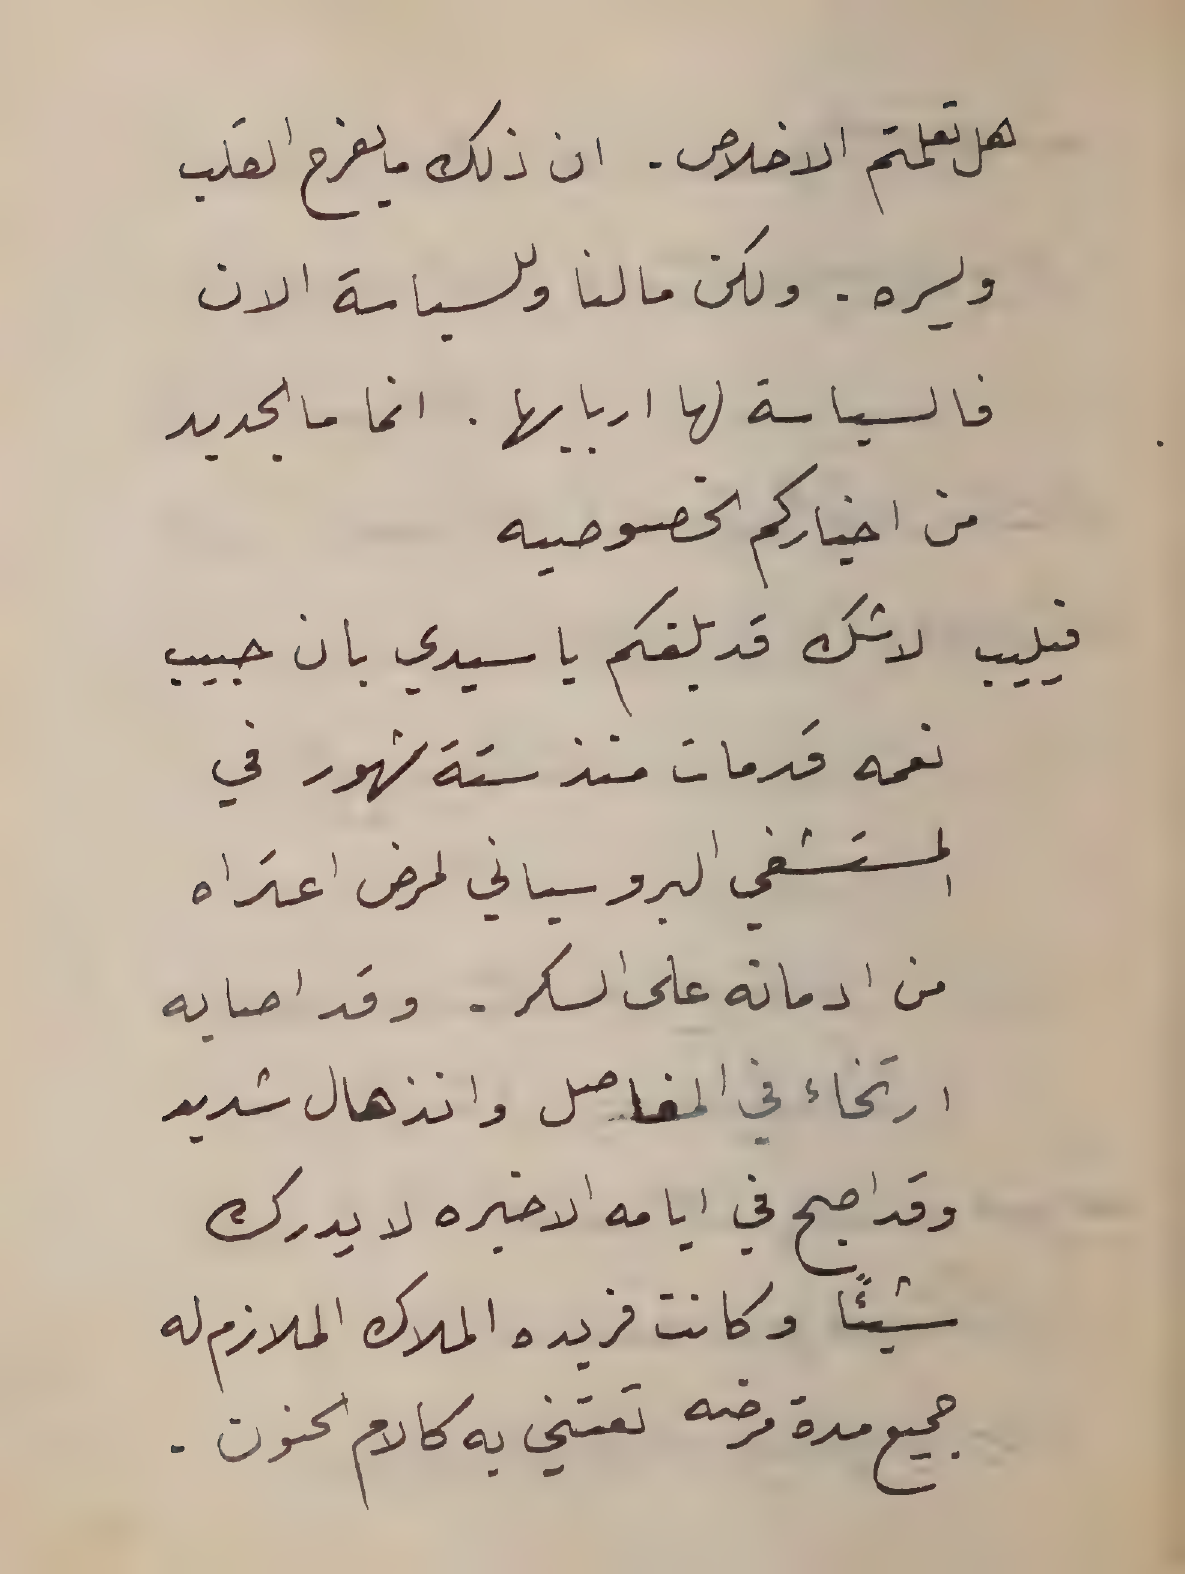 هل تعلمتم الاخلاص . ان ذلك ما يفرح القلب
ويسره . ولكن مالنا وللسياسة الان
فالسياسة لها اربابها . انما ما الجديد
من اخباركم الخصوصيه
فيليب لاشك قد بلغكم يا سيدي بان حبيب
نعمه قد مات منذ ستة شهور في
المستشفي البروسياني لمرض اعتراه
من ادمانه على السكر . وقد اصابه
ارتخاء في المفاصل وانذهال شديد
وقد اصبح في ايامه الاخيره لا يدرك
شيئًا وكانت فريده الملاك الملازم له
جميع مدة مرضه تعتني به كالام الحنون .